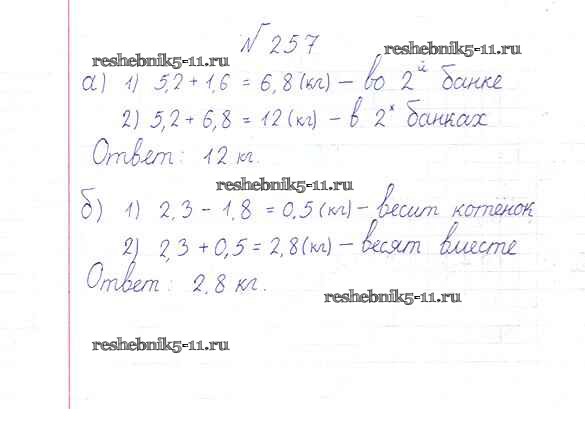 № 257
reshebnik5-11.ru
reshebnik5-11.ru
а) 1) 5,2 + 1,6 = 6,8 (кг) – во 2й банке
2) 5,2 + 6,8 = 12 (кг) – в 2х банках
Ответ: 12 кг.
reshebnik5-11.ru
б) 1) 2,3 – 1,8 = 0,5 (кг) – весит котёнок
2) 2,3 + 0,5 = 2,8 (кг) – весят вместе
Ответ: 2,8 кг.
reshebnik5-11.ru
reshebnik5-11.ru